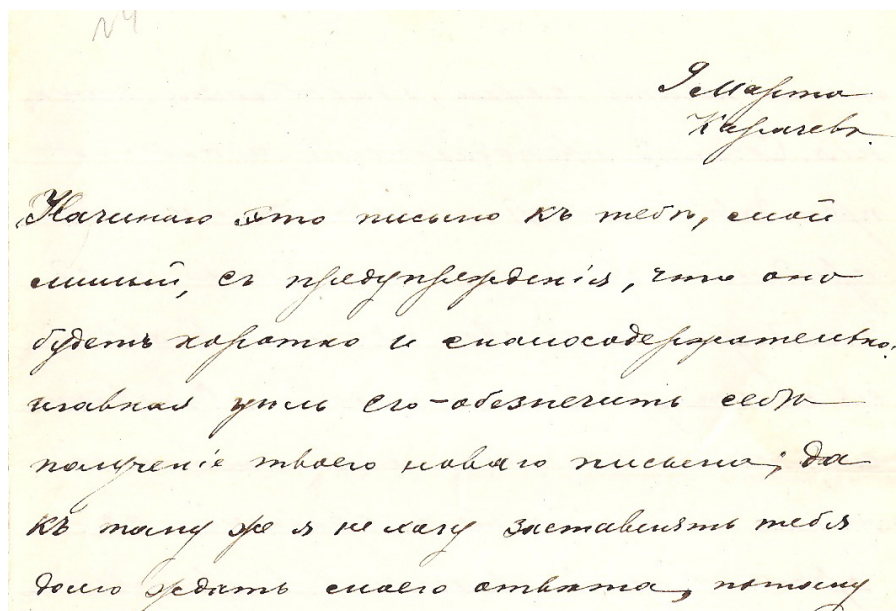 N4
9 Марта
Карачевъ.
Начинаю это письмо къ тебѣ, мой
милый, съ предупрежденія, что оно
будетъ коротко и малосодержательно:
главная цѣль его – обезпечить себѣ
полученіе твоего новаго письма; да
къ тому же я не хочу заставлять тебя
долго ждать моего отвѣта, потому